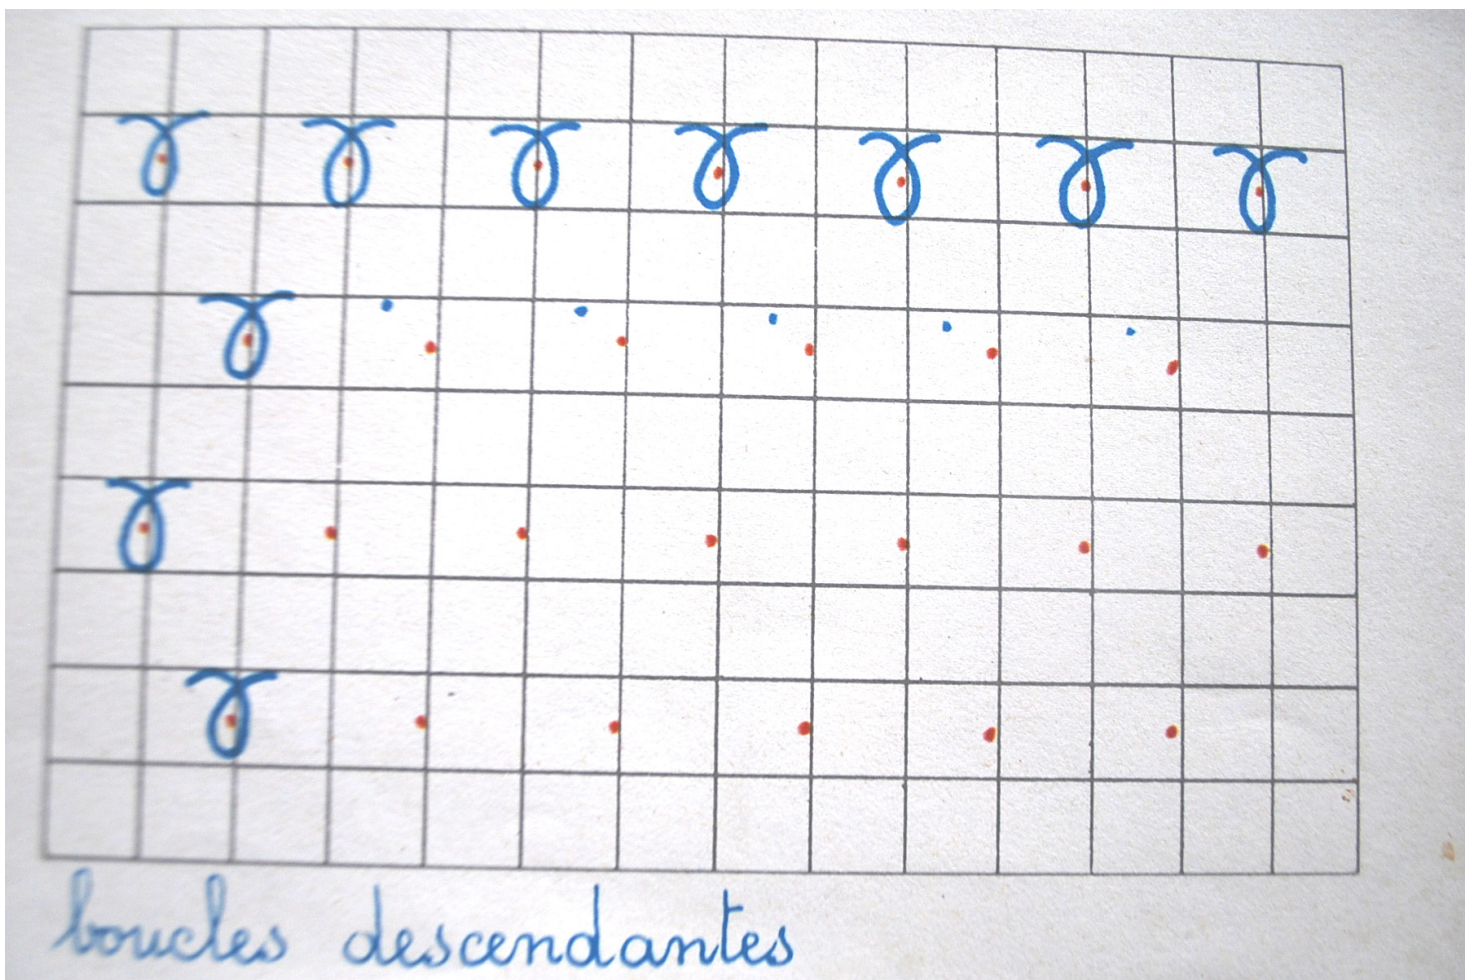 boucles descendantes